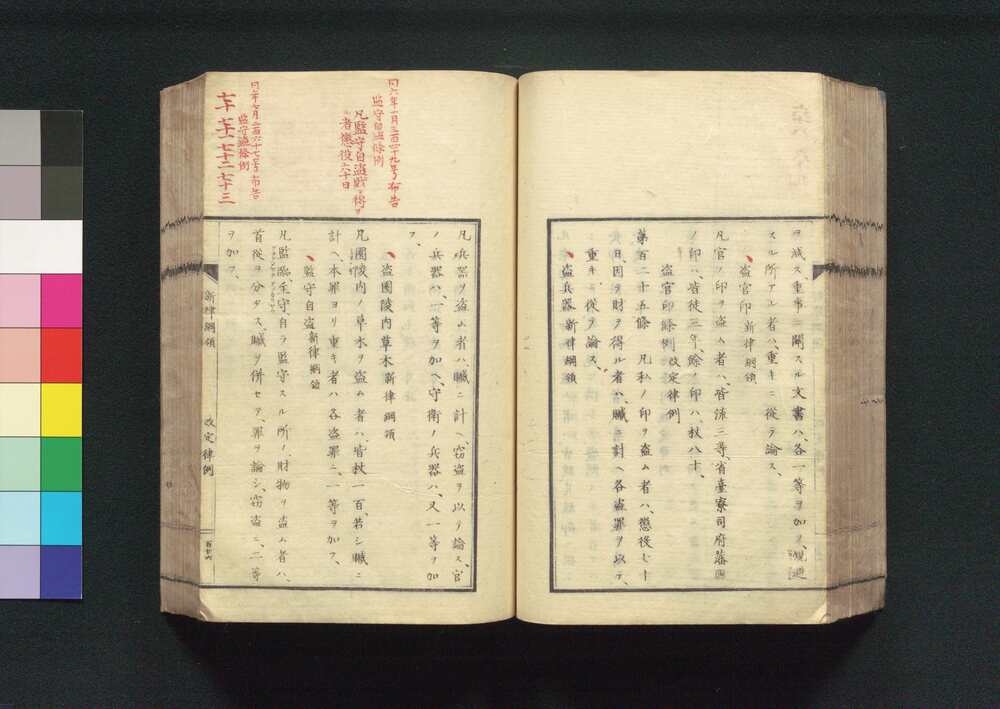 ヲ減ス、重事ニ關スル文書ハ、各一等ヲ加ヘ、規避
スル所アル者ハ、重キニ從テ論ス、
盗官印 新律綱領
凡官ノ印ヲ盗ム者ハ、皆流三等、省臺寮司府藩縣
ノ印ハ、皆徒三年、餘ノ印ハ、杖八十、
盗官印條例 改定律例
第百二十五條 凡私ノ印ヲ盗ム者ハ、懲役七十
日、因テ財ヲ得ル者ハ、贓ニ計ヘ各盗罪ヲ以テ、
重キニ從テ論ス、
盗兵器 新律綱領
凡兵器ヲ盗ム者ハ、贓ニ計ヘ、窃盗ヲ以テ論ス、官
ノ兵器ハ、一等ヲ加ヘ、守衛ノ兵器ハ、又一等ヲ加
フ、
盗園陵内草木 新律綱領
凡園陵内ノ草木ヲ盗ム者ハ、皆杖一百、若シ贓ニ
計ヘ、本罪ヨリ重キ者ハ各盗罪ニ、一等ヲ加フ、
監守自盗 新律綱領
凡監臨主守自ラ監守スル所ノ財物ヲ盗ム者ハ、
首從ヲ分タス、贓ヲ併セテ、罪ヲ論シ、窃盗ニ、二等
ヲ加フ、
同六年一月三百四十九号布告
監守自盗條例
凡監守自盗贓ヲ得ル
者懲役六十日
同二百六十七号布告
監守盗條例
七十 七十一 七十二 七十三
新律綱領 改定律例
百廿六